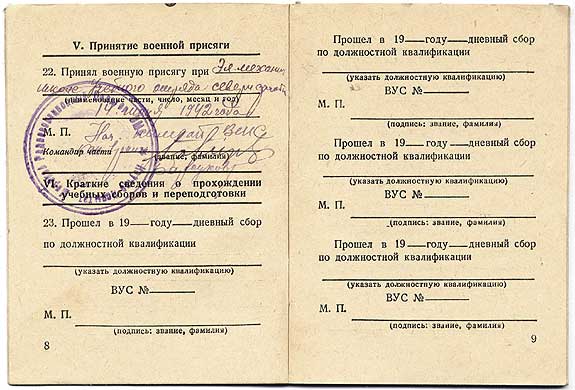 V. Принятие военной присяги
22. Принял военную присягу при Эл. механич
школе учебного отряда северн. флота
(наименование части, число, месяц и год)
1942 года
М. П. Нач.
Командир части
(звание, фамилия)
VI. Краткие сведения о прохождении
учебных сборов и переподготовки
23. Прошел в 19—году—дневный сбор
по должностной квалификации
(указать должностную квалификацию)
ВУС №
М. П.
(подпись: звание, фамилия)
8
Прошел в 19—году—дневный сбор
по должностной квалификации
(указать должностную квалификацию)
ВУС №
М. П.
(подпись: звание, фамилия)
Прошел в 19—году—дневный сбор
по должностной квалификации
(указать должностную квалификацию)
ВУС №
М. П.
(подпись: звание, фамилия)
Прошел в 19—году—дневный сбор
по должностной квалификации
(указать должностную квалификацию)
ВУС №
М. П.
(подпись: звание, фамилия)
9